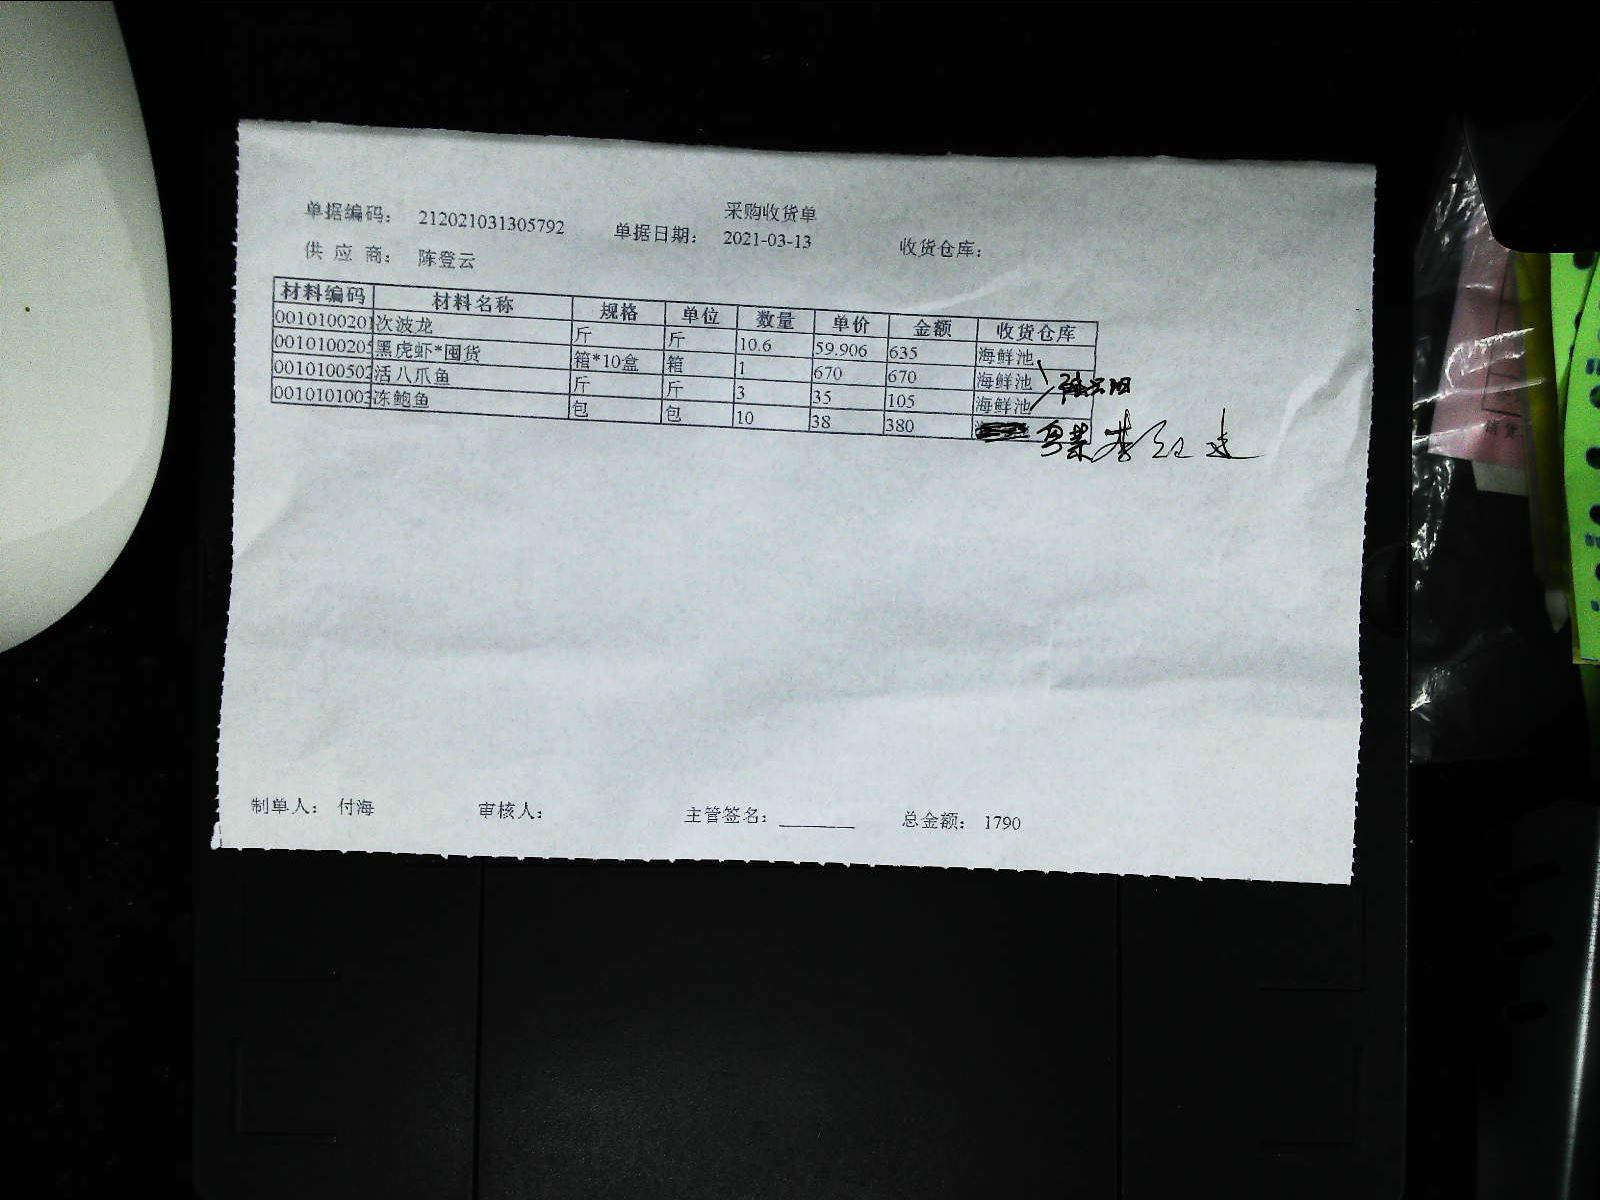 采购收货单
单据编码： 212021031305792 单据日期： 2021-03-13 收货仓库：
供应商： 陈登云
材料编码 材料名称 规格 单位 数量 单价 金额 收货仓库
0010100201 次波龙 斤 斤 10.6 59.906 635 海鲜池
0010100205 黑虎虾*囤货 箱*10盒 箱 1 670 670 海鲜池
0010100502 活八爪鱼 斤 斤 3 35 105 海鲜池
0010101003 冻鲍鱼 包 包 10 38 380 粤菜
制单人： 付海 审核人： 主管签名： 总金额： 1790